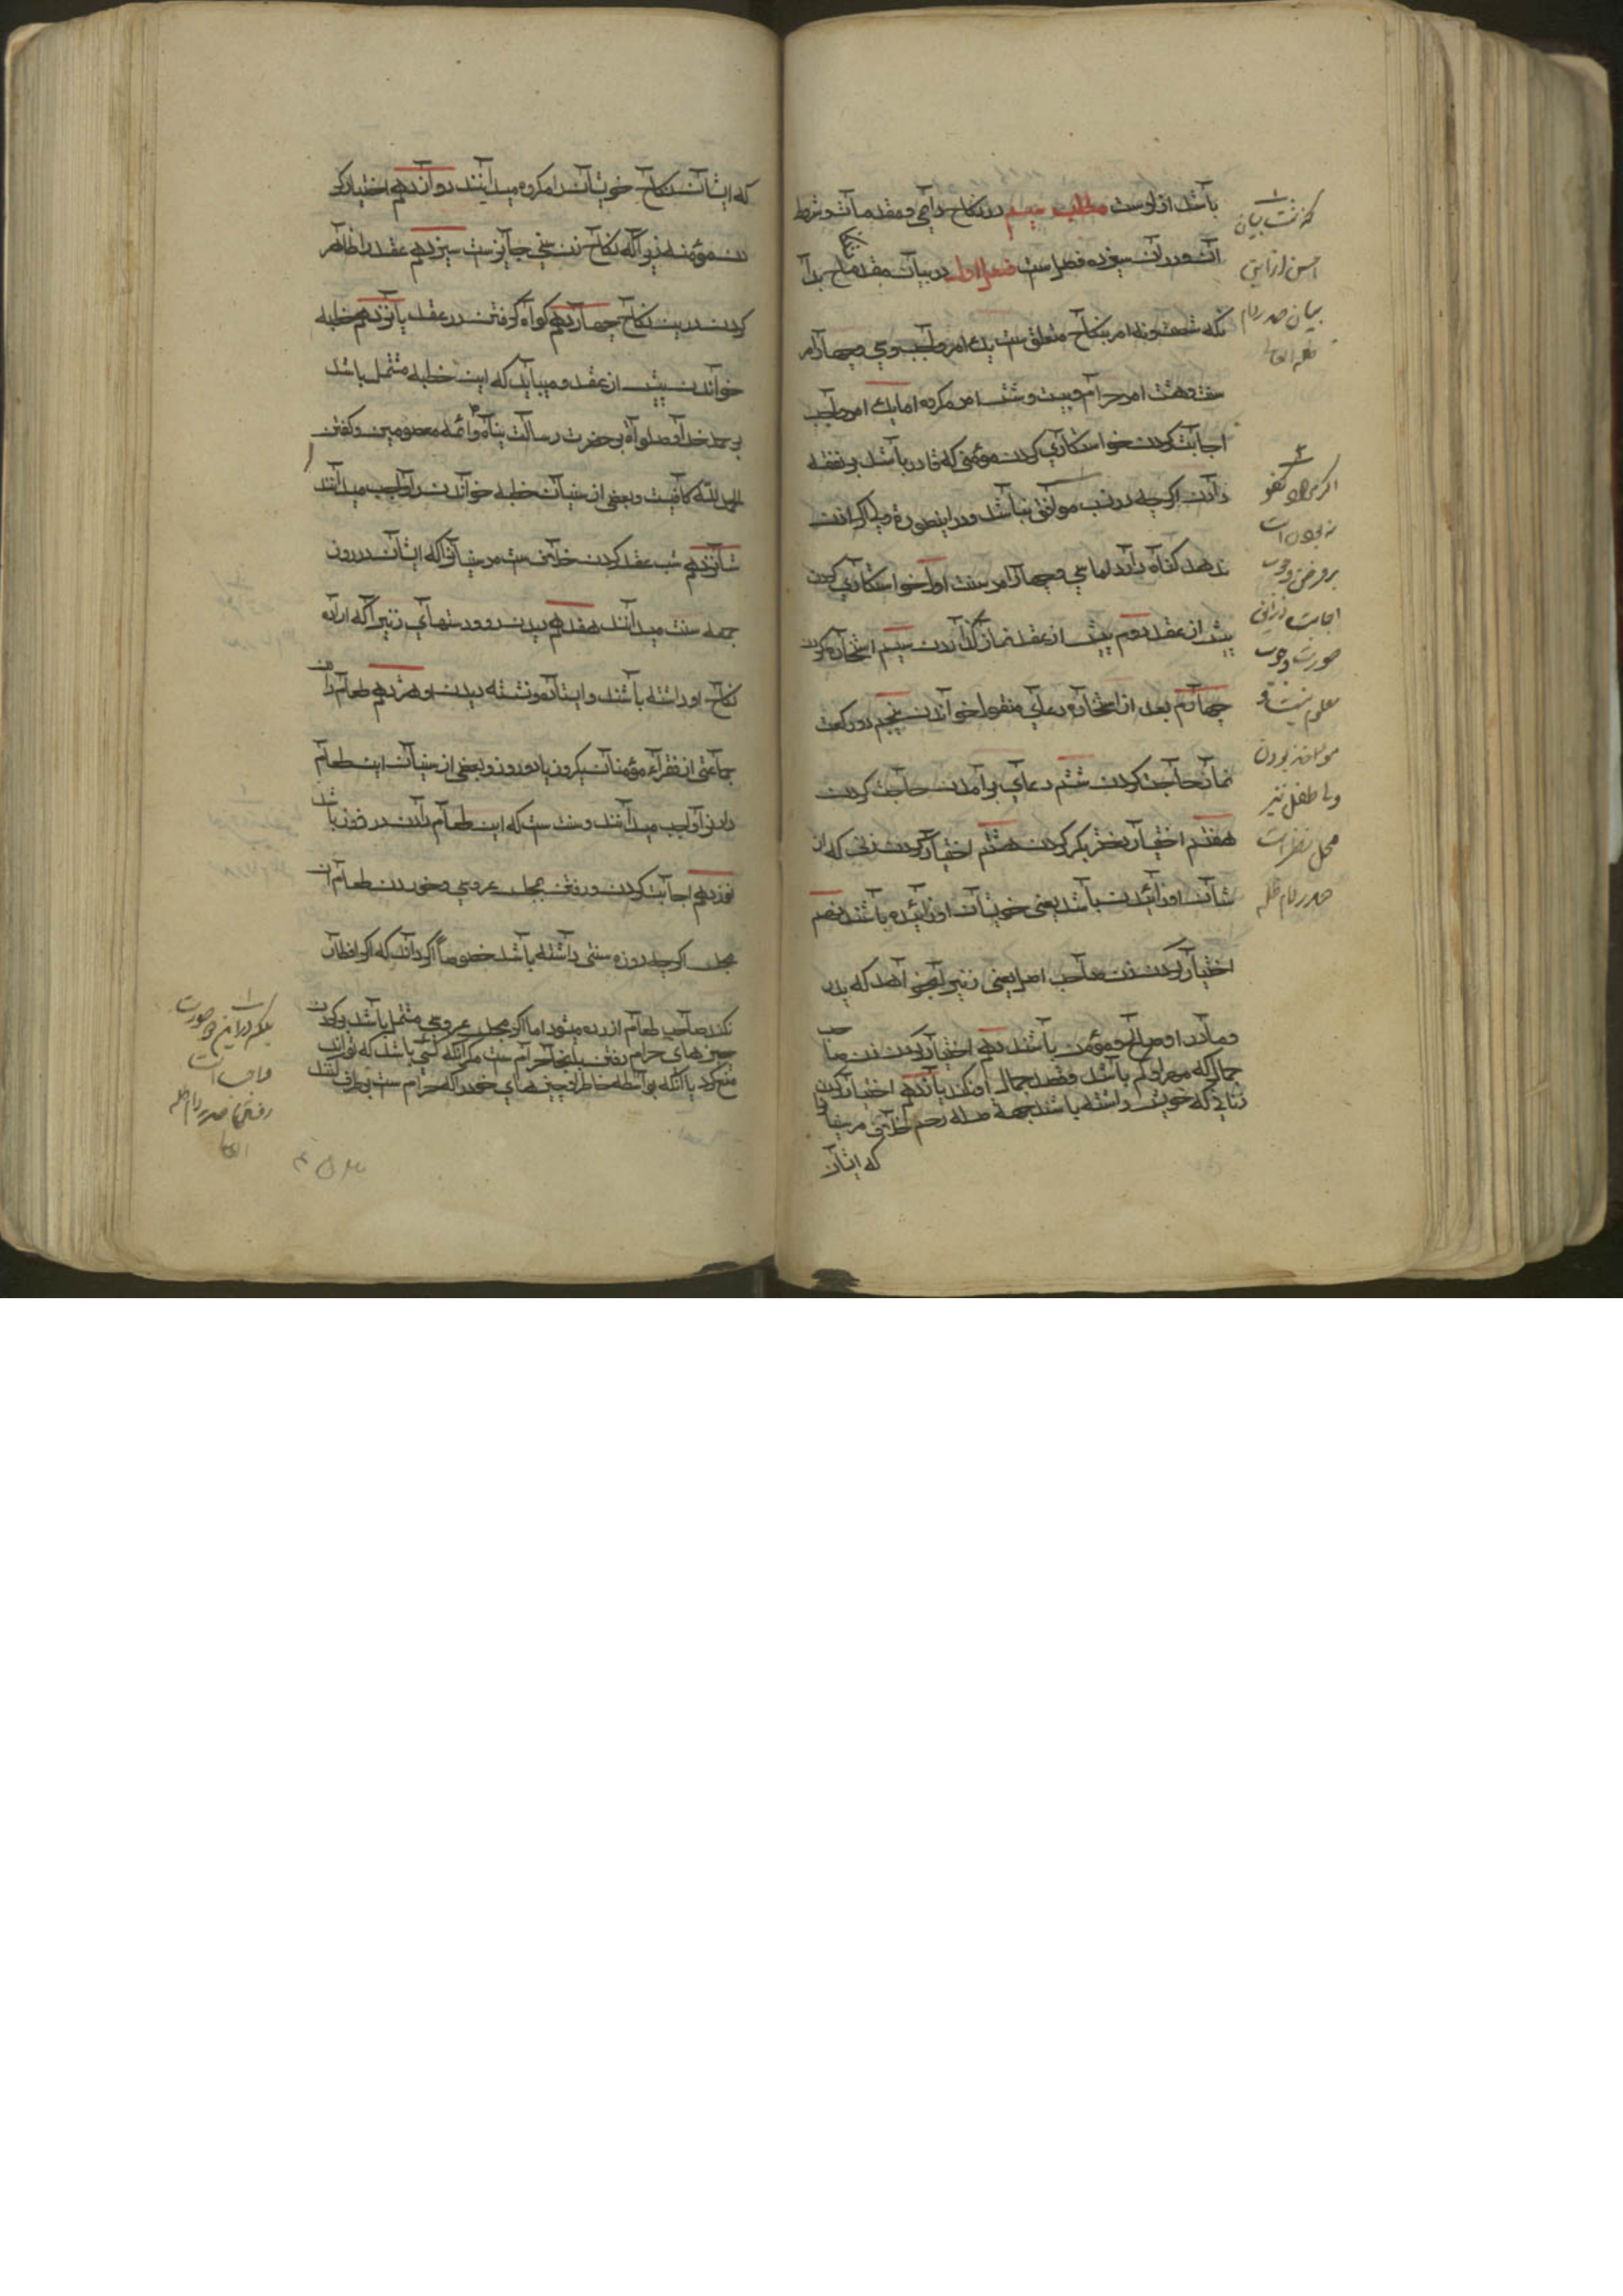 باشد از اوست مطلب سیم در نکاح دایمی و مقدمات و شروط
آن و در آن سیزده فصل است فصل اول در بیان مقدمات نکاح بدا
نکه شصت و نه امر بنکاح متعلق ست یك امر واجب و سی و چهار امر
سنت و هشت امر حرام و بیست و شش امر مکروه اما یك امر واجب
اجابت کردن خواستکاری کردن مؤمنی که قادر باشد بر نفقه
دادن اکرچه در نسب موافق نباشد و در اینصورة ولی اکر اذن
ندهد کناه دارد اما سی و چهار امر سنت اول خواستکاری کردن
پیش از عقد دوم پیش از عقد نماز کذاردن سیم استخاره کردن
چهارم بعد از استخاره دعای منقول خواندن پنجم دو رکعت
نماز حاجت کردن ششم دعای برآمدن حاجت کردن
هفتم اختیار دختر بکر کردن هشتم اختیار کردن زنی که از
شان او زائیدن باشد یعنی خویشان او زائیده باشند نهم
اختیار کردن زن صاحب اصل یعنی زنیرا بخواهد که پدر
و مادر او صالح و مؤمن باشند دهم اختیار کردن زن صاحب
جمال که مهر او کم باشد و قصد جمال او نکند یازدهم اختیار کردن
زنانی که خویش داشته باشد بجهة صله رحم خلاف مر بعضی را
که ایشان
که نسبت بیان
احسن از این
بیان صدر دام
ظله العالی
اکر مراد کفو
نبودن است
بر فرض وجوب
اجابت در این
صورت وجوب
معلوم نیست و
موافق نبودن
ولی طفل نیز
محل نظر است
صدر دام ظله
که ایشان نکاح خویشان را مکروه میدانند دوازدهم اختیار کر
دن مؤمنه زیرا که نکاح زن سنی جایز ست سیزدهم عقد را ظاهر
کردن درین نکاح چهاردهم کواه کرفتن در عقد پانزدهم خطبه
خواندن پیش از عقد و میباید که این خطبه مشتمل باشد
بر حمد خدا و صلواة بر حضرت رسالت پناه و ائمه معصومین و کفتن
الحمد لله کافیست و بعضی از سنیان خطبه خواندن را واجب میدانند
شانزدهم شب عقد کردن خلاف ست مر سنیانرا که ایشان در روز
جمعه سنت میدانند هفدهم دیدن رو و دستهای زنیرا که اراده
نکاح او داشته باشند و ایستاده و نشسته دیدن او هژدهم طعام دادن
جماعتی از فقراء مؤمنان یکروز یا دو روز و بعضی از سنیان این طعام
دادن را واجب میدانند و سنت ست که این طعام دادن در روز باشد
نوزدهم اجابت کردن و رفتن بمجلس عروسی و خوردن طعام آن
مجلس اکرچه روزه سنتی داشته باشد خصوصاً اکر داند که اکر افطار
نکند صاحب طعام آزرده میشود اما اکر مجلس عروسی مشتمل باشد بر کردن
چیزهای حرام رفتن بانجا حرام ست مکر آنکه کسی باشد که تواند
منع کرد یا آنکه بواسطه خاطر او چیزهای خود را که حرام ست برطرف کنند
بلکه در این صورت
واجب است
رفتن صدر دام ظله
العالی